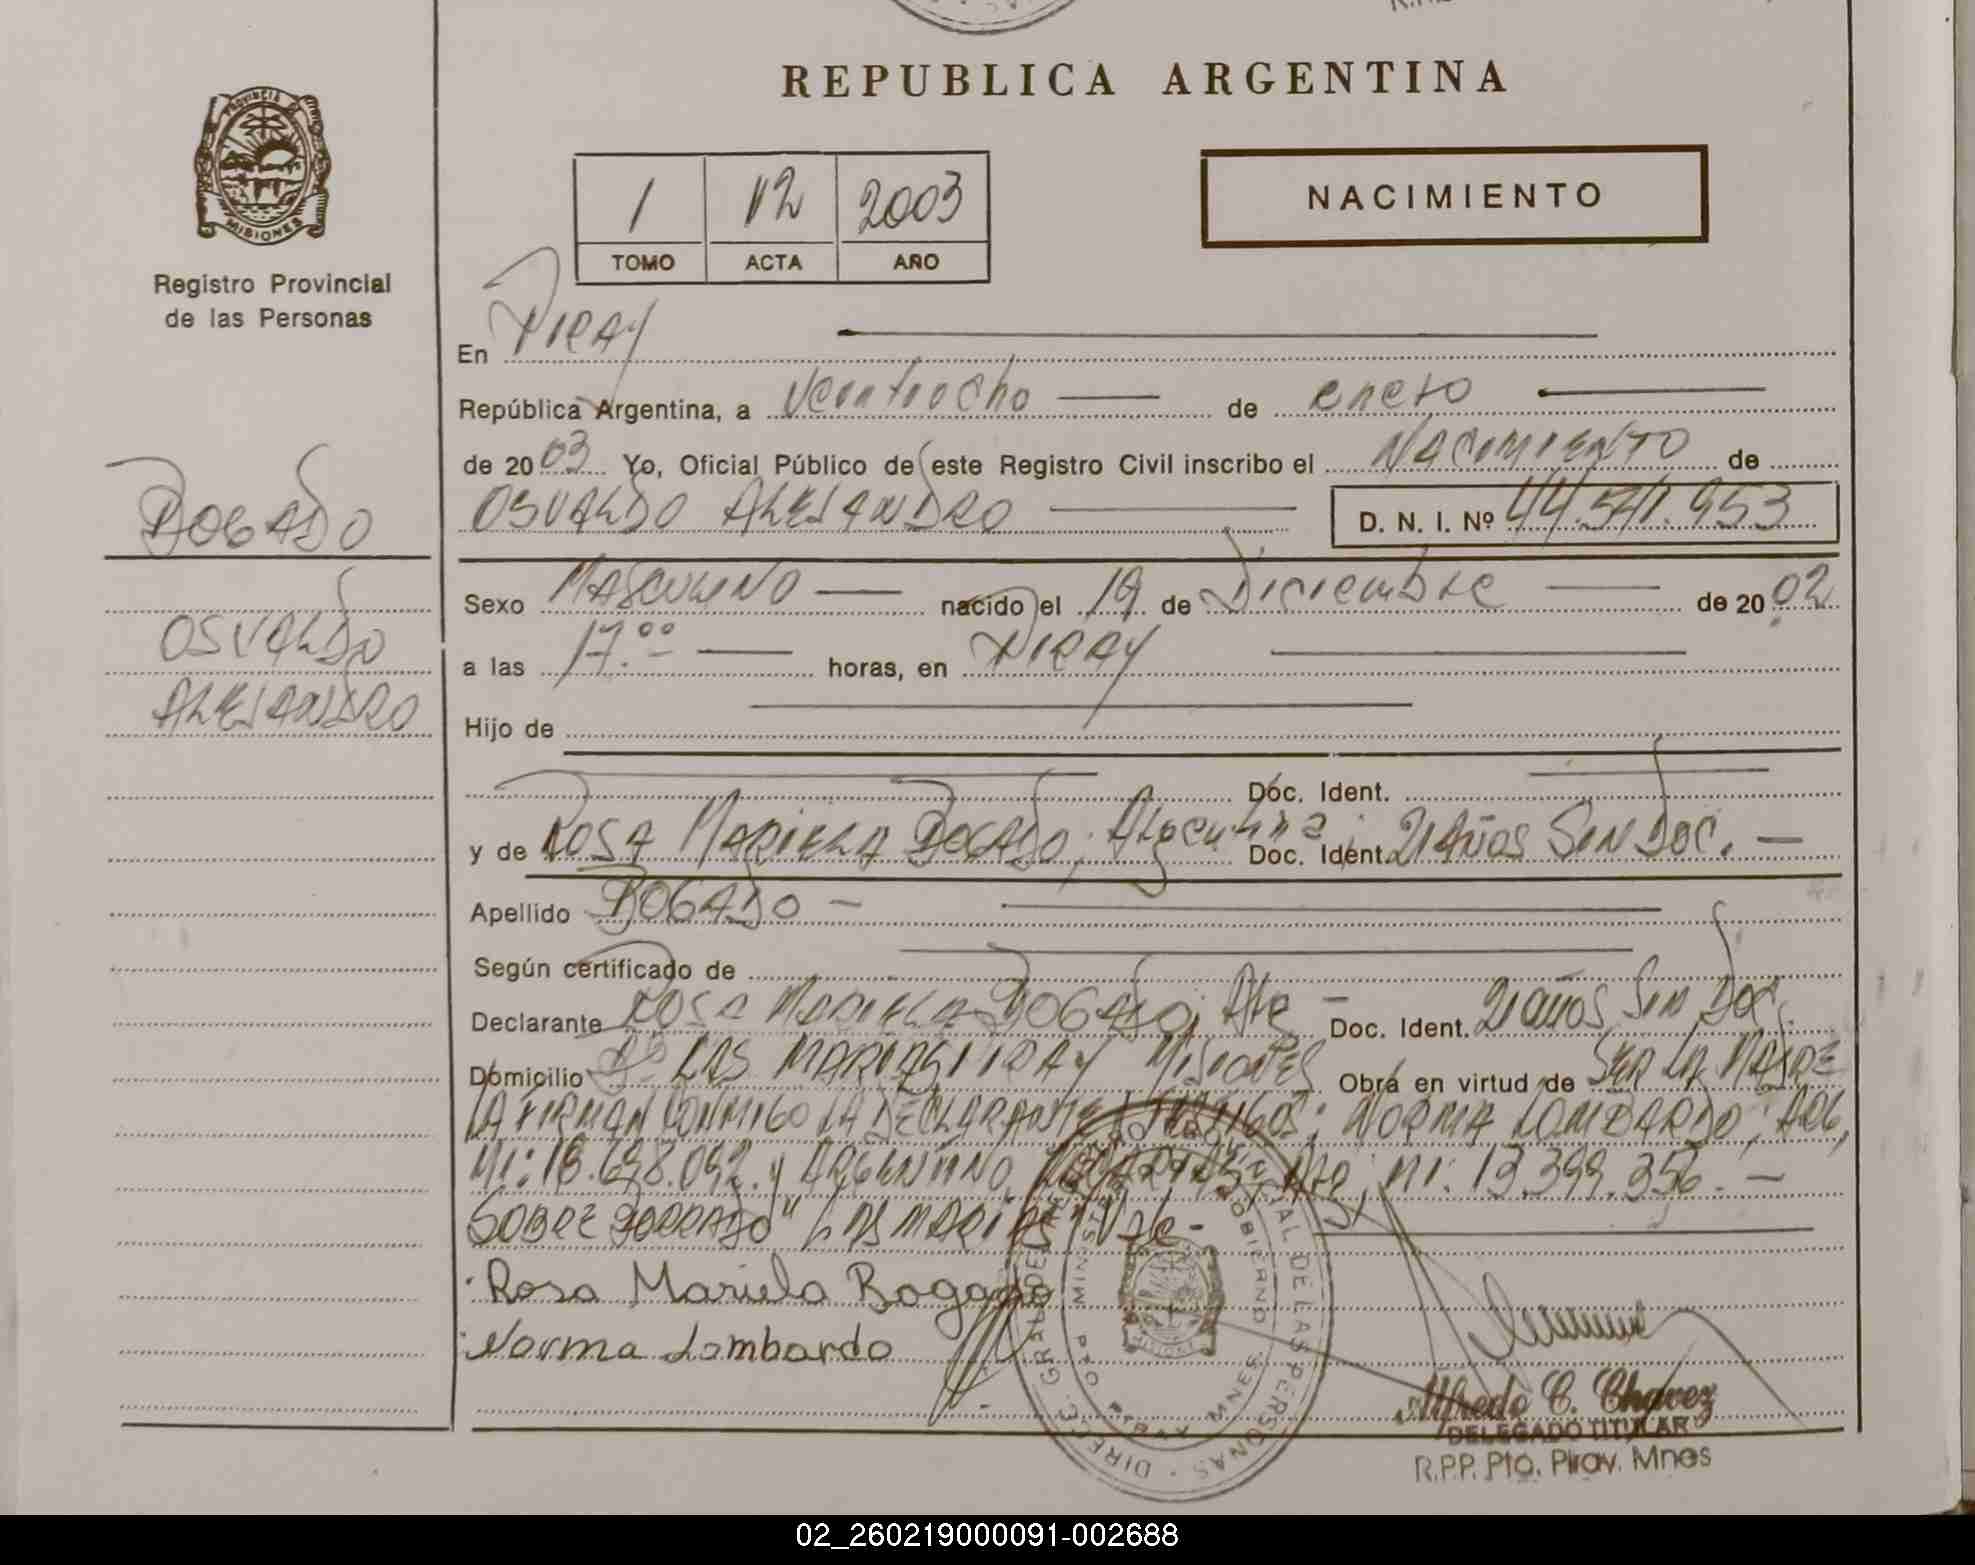 REPUBLICA ARGENTINA
PROVINCIA DE MISIONES
Registro Provincial
de las Personas
1 12 2003
TOMO ACTA AÑO
NACIMIENTO
En PIRAY
República Argentina, a Veintiocho de enero
de 2003 Yo, Oficial Público de este Registro Civil inscribo el NACIMIENTO de
OSVALDO ALEJANDRO D. N. I. Nº 44.541.953
BOGADO
OSVALDO
ALEJANDRO
Sexo MASCULINO nacido el 19 de Diciembre de 2002
a las 17.00 horas, en PIRAY
Hijo de
Doc. Ident.
y de ROSA MARIELA BOGADO, Argentina, Doc. Ident. 21 Años SIN DOC.
Apellido BOGADO
Según certificado de
Declarante ROSA MARIELA BOGADO, Arg Doc. Ident. 21 años SIN DOC.
Domicilio Bº LAS MARIAS PIRAY MISIONES Obra en virtud de SER LA MADRE
LA FIRMAN CONMIGO LA DECLARANTE Y TESTIGOS: NORMA LOMBARDO, ARG,
MI: 18.698.092. y ARGENTINO Arg, MI: 13.399.356.
SOBRE BORRADO "LAS MARIAS" Vale
Rosa Mariela Bogado
Norma Lombardo
DIREC. GRAL. DEL REGISTRO PROVINCIAL DE LAS PERSONAS
MINISTERIO GOBIERNO
PTO PIRAY MNES
Alfredo C. Chavez
DELEGADO TITULAR
R.P.P. Pto. Piray. Mnes
02_260219000091-002688